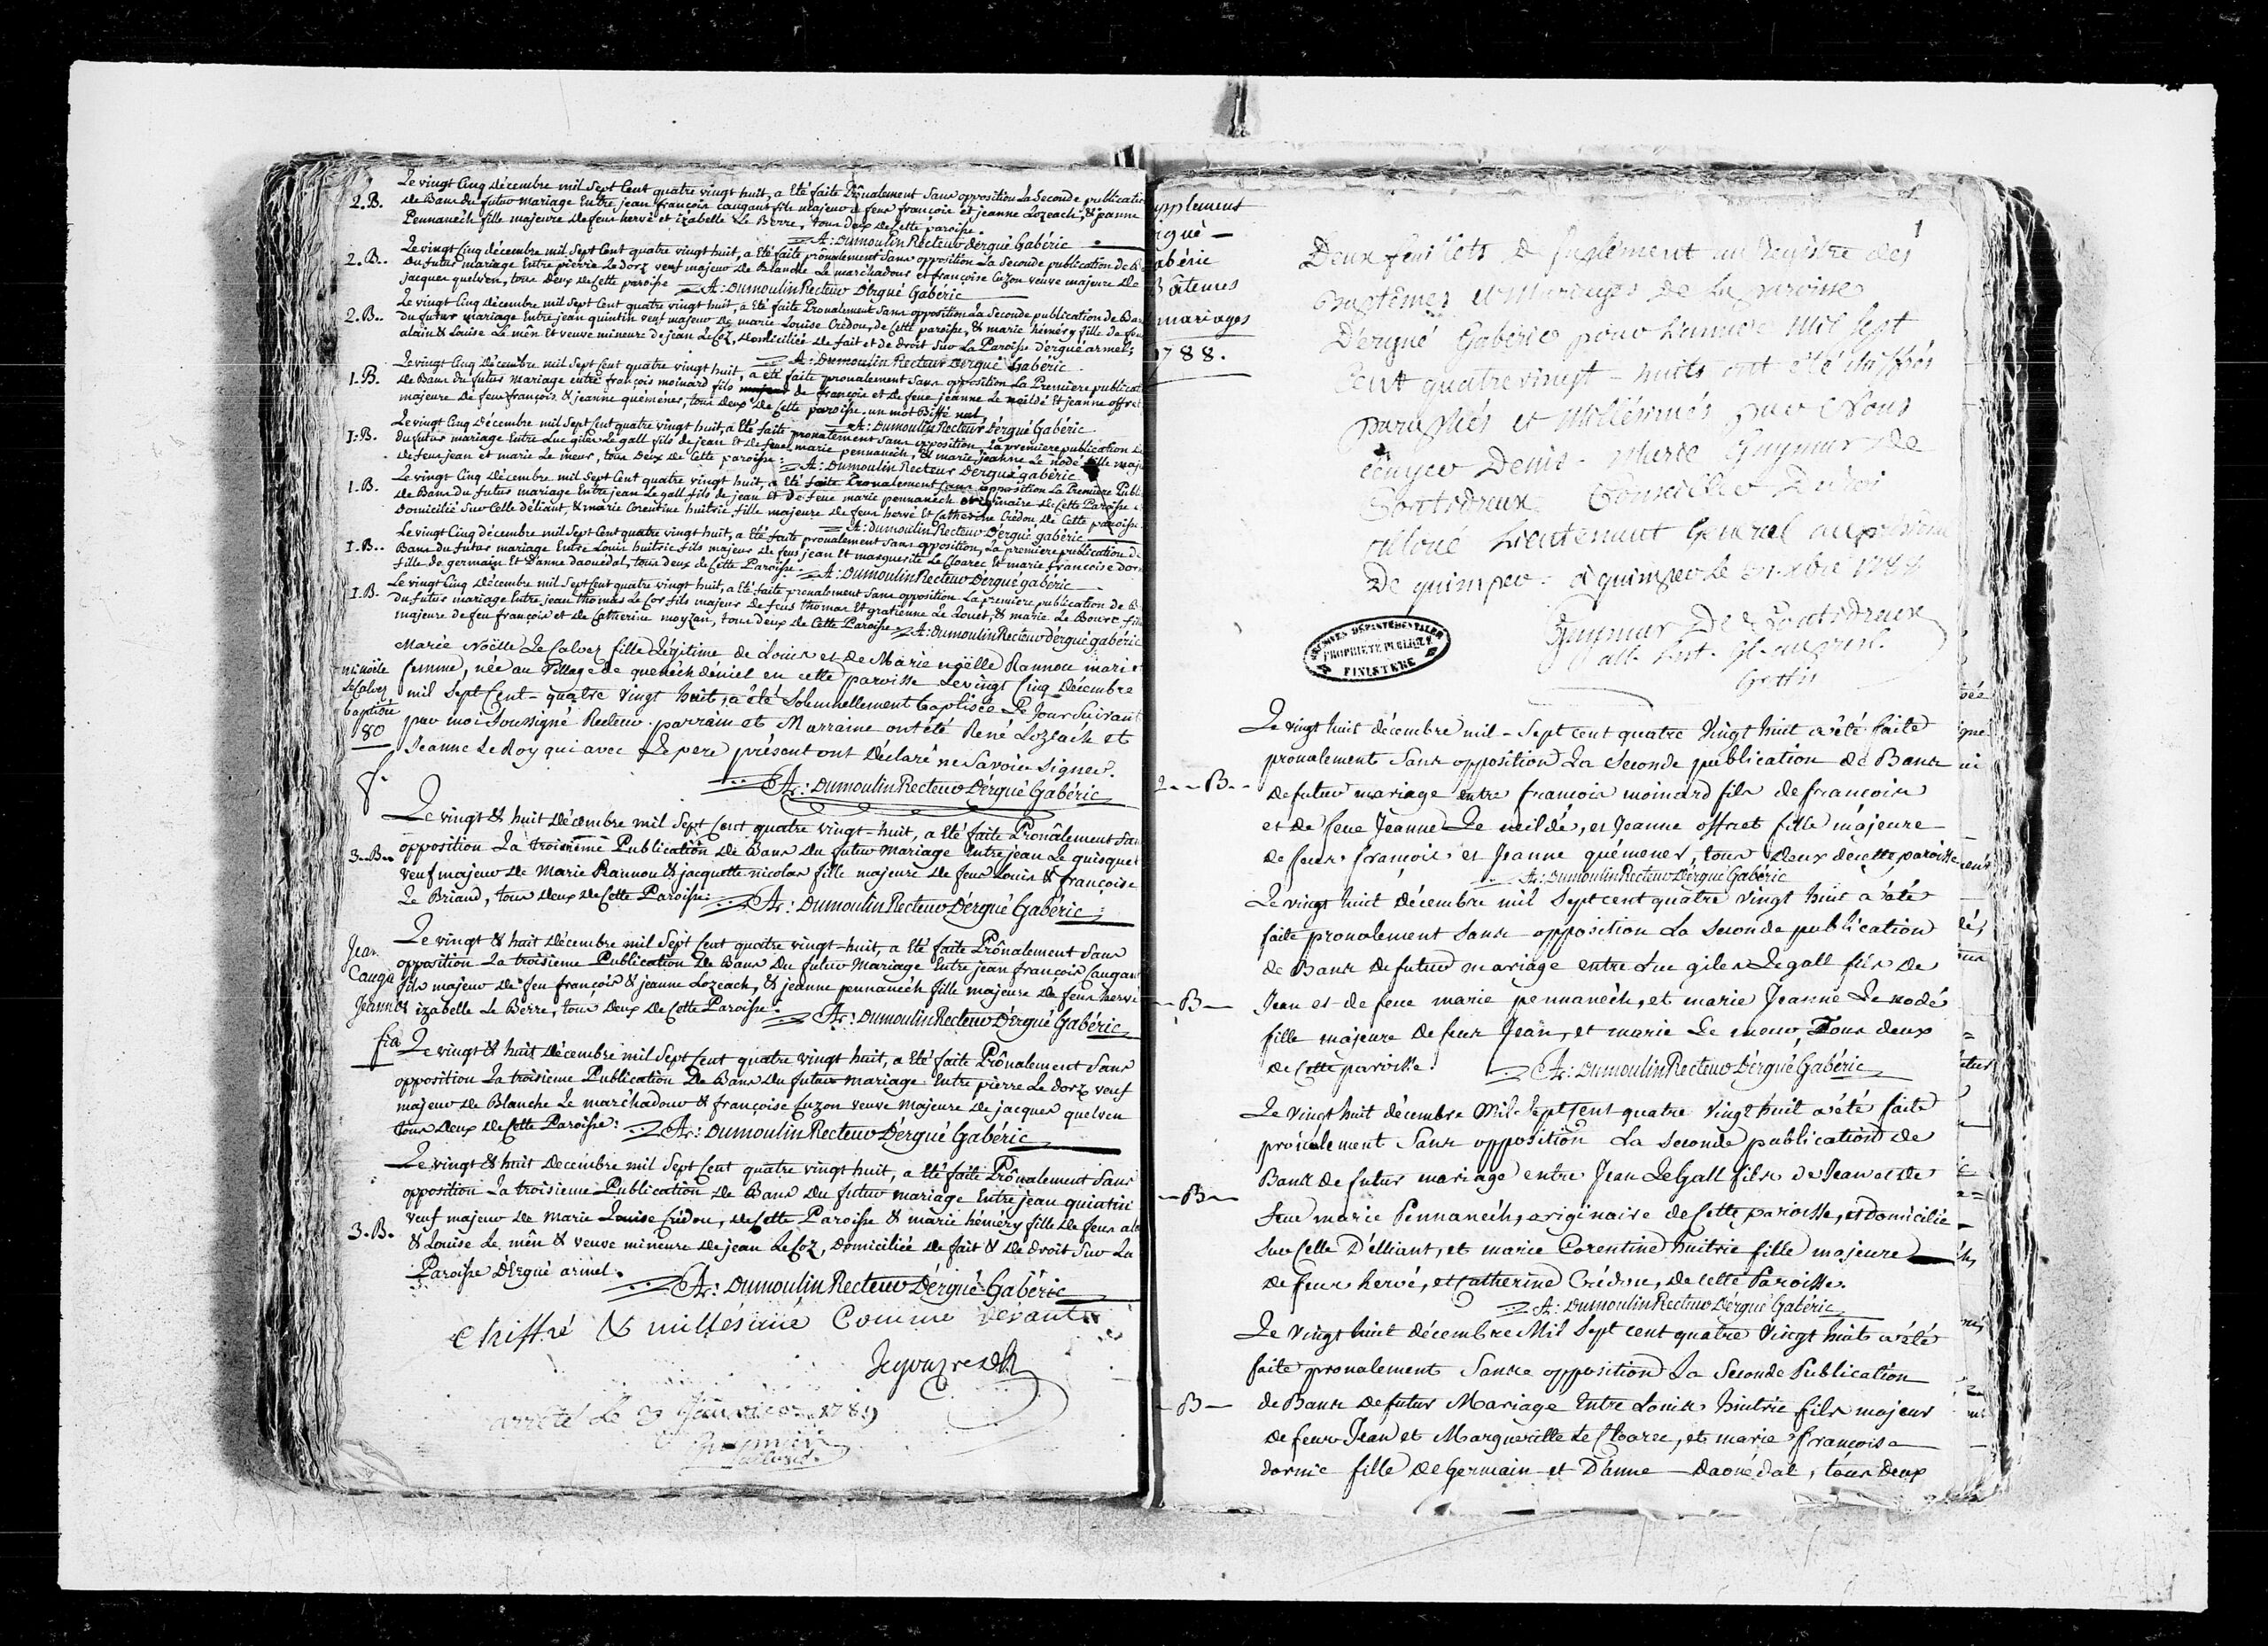 Le vingt Cinq Décembre mil Sept Cent quatre vingt huit, a Eté faite Prônalement Sans opposition La Seconde publication
2. B. de Bans du futur Mariage Entre jean françois caugant fils majeur de feus françois et jeanne Lozeach, & jeanne
Pennanéch fille majeure de feus hervé et izabelle Le Berre, tous deux de Cette paroisse.
A: Dumoulin Recteur d'ergué Gabéric
Le vingt Cinq décembre mil Sept Cent quatre vingt huit, a Eté faite prônalement Sans opposition La Seconde publication de B
2. B.. Du futur mariage Entre pierre Le dorz veuf majeur de Blanche Le marchadour et françoise Cuzon veuve majeure de
jacques quelven, tous Deux de Cette paroisse A: Dumoulin Recteur D'érgué Gabéric
Le vingt Cinq décembre mil Sept Cent quatre vingt huit, a Eté faite Prônalement Sans opposition La Seconde publication de Ban
2. B.. du futur mariage Entre jean quintin veuf majeur de marie Louise Crédou, de Cette paroisse, & marie héméry fille de feus
alain & Louise Le mên Et veuve mineure de jean Le Coz, Domiciliée de fait et de droit Sur La Paroisse d'ergué armel;
A: Dumoulin Recteur D'ergué Gabéric
Le vingt Cinq Décembre mil Sept Cent quatre vingt huit, a été faite pronalement Sans opposition La Premiere publicat
1. B. de Bans du futur Mariage entre françois moinard fils majeur de françois et de feue jeanne Le neildé Et jeanne offret
majeure de feus françois & jeanne quéméner, tous Deux de Cette paroisse. un mot Biffé nul,
A: Dumoulin Recteur D'érgué Gabéric
Le vingt Cinq Décembre mil Sept Cent quatre vingt huit, a Eté faite pronalement Sans opposition La premiere publication de
1. B. du futur mariage Entre Luc giles Le gall fils de jean Et de feue marie pennanech, & marie jeanne Le node fille maje
de feus jean et marie Le meur, tous Deux de Cette paroisse: A: Dumoulin Recteur D'érgué gabéric
Le vingt Cinq Décembre mil Sept Cent quatre vingt huit, a Eté faite Pronalement Sans opposition La Premiere Publ
1. B. de Bans du futur mariage Entre jean Le gall fils de jean Et de feue marie pennanéch originaire de Cette Paroisse &
Domicilié Sur Celle d'éliant, & marie Corentine huitric fille majeure de feus hervé Et Catherine Crédou, de Cette paroisse
A: Dumoulin Recteur D'érgué gabéric
Le vingt Cinq décembre mil Sept Cent quatre vingt huit, a Eté faite pronalement Sans opposition, La premiere publication de
1. B.. Bans du futur mariage Entre Louis huitric fils majeur de feus jean Et marguerite Le Cloarec Et marie françoise dor
fille de germain Et D'anne daouédal, tous deux de Cette Paroisse. A: Dumoulin Recteur D'érgué gabéric
Le vingt Cinq Décembre mil Sept Cent quatre vingt huit, a Eté faite prenalement Sans opposition La premiere publication de B
1. B. du futur mariage Entre jean thomas Le Cor fils majeur de feus thomas Et gratienne Le Louet, & marie Le Bourc fille
majeure de feu françois et de Catherine moyzan, tous deux de Cette Paroisse. A: Dumoulin Recteur D'érgué gabéric
Marie Noëlle Le Calvez fille Légitime de Louis et de Marie noëlle Rannou mari et
m: noële femme, née au Village de quenéch déniel en cette paroisse Le vingt Cinq Décembre
Le Calvez mil Sept Cent-quatre vingt huit, a été Solemnellement baptisée Le Jour Suivant
baptisée par moi Soussigné Recteur. parrain et Marraine ont été René Lozeach et
80 Jeanne Le Roy qui avec Le pere présent ont Déclaré ne Savoir Signer.
A: Dumoulin Recteur D'érgué Gabéric
Le vingt & huit Décembre mil Sept Cent quatre vingt-huit, a Eté faite Prônalement San
opposition La troisieme Publication de Bans Du futur Mariage Entre jean Le quisque
3.. B.. veuf majeur de Marie Rannou & jacquette nicolas fille majeure de feus Louis & françoise
Le Briand, tous Deux de Cette Paroisse: A: Dumoulin Recteur D'érgué Gabéric
Le vingt & huit Décembre mil Sept Cent quatre vingt-huit, a Eté faite Prônalement Sans
Jean opposition La troisieme Publication De Bans Du futur Mariage Entre jean françois Caugan
Cauga fils majeur de feu françois & jeanne Lozeach, & jeanne pennanéch fille majeure de feus hervé
Jeanne & izabelle Le Berre, tous Deux de Cette Paroisse: A: Dumoulin Recteur D'érgué Gabéric
fia Le vingt & huit Décembre mil Sept Cent quatre vingt huit, a Eté faite Prônalement Sans
opposition La troisieme Publication De Bans Du futur Mariage Entre pierre Le dorz veuf
majeur de Blanche Le marchadour & françoise Cuzon veuve Majeure de jacques quelven
tous Deux de Cette Paroisse: A: Dumoulin Recteur D'érgué Gabéric
Le vingt & huit Decembre mil Sept Cent quatre vingt huit, a Eté faite Prônalement Sans
opposition La troisieme Publication de Bans Du futur mariage Entre jean quintin
veuf majeur de Marie Louise Crédou, de Cette Paroisse & marie héméry fille de feus ala
3. B. & Louise Le mên & veuve mineure de jean Le Coz, Domiciliée de fait & de droit Sur La
Paroisse D'Ergué armel. A: Dumoulin Recteur D'érgué-Gabéric
Chiffré & millésimé Comme devant
arrêté Le Janvier 1789
upplement
rgué -
abéric
Bâtemes
mariages
1788.
1
Deux feuillets de suplément au Registre des
Baptêmes et Mariages de La paroisse
D'ergué Gabéric pour L'année Mil Sept
Cent quatre vingt-huits ont été chiffrés
paraphés et Millésimés par Nous
écuyer Denis-Marie Guymar de
Pontidreux Conseiller du Roi
alloué Lieutenant Général au présidial
De quimper. à quimper le xbre 1788
Guymar De Pontidreux
all. Lieut. gl. au présl.
Gratis
ARCHIVES DÉPARTEMENTALES
PROPRIÉTÉ PUBLIQUE
FINISTÈRE
Le vingt huit décembre mil-Sept cent quatre Vingt huit a été faite
pronalement Sans opposition La Seconde publication de Bans
2--B-- de futur mariage entre francois moinard fils de francois
et de feue Jeanne Le neildé, et Jeanne offret fille majeure
de feus françois et Jeanne quémener, tous Deux de cette paroisse
A: Dumoulin Recteur D'érgué Gabéric
Le vingt huit Décembre mil Sept cent quatre Vingt huit a été
faite pronalement Sans opposition La Seconde publication
de Bans de futur mariage entre Luc giles Le gall fils De
-B- Jean et de feue marie pennanéch, et marie Jeanne Le nodé
fille majeure de feus Jean, et marie Le meur, Tous deux
de Cette paroisse. A: Dumoulin Recteur D'érgué Gabéric
Le vingt huit décembre Mil-Sept Cent quatre Vingt huit a été faite
pronalement Sans opposition La Seconde publication de
Bans de futur mariage entre Jean Le Gall fils de Jean et de
-B- feue marie Pennanéch, originaire de Cette paroisse, et domicilié
Sur Celle D'élliant, et marie Corentine huitric fille majeure
de feus hervé, et Catherine Crédou, de cette Paroisse.
A: Dumoulin Recteur D'érgué Gabéric
Le Vingt huit décembre Mil Sept cent quatre Vingt huit a été
faite pronalement Sans opposition La Seconde Publication
-B- de Bans de futur Mariage Entre Louis huitric fils majeur
de feus Jean et Marguerilte Le Cloarec, et marie françoise
dornic fille de Germain et D'anne Daouédal, tous Deux